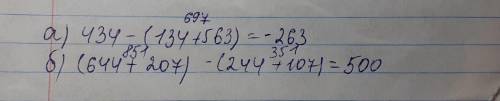 697
а) 434 - (134+563) = -263
851 351
б) (644+207) - (244+107) = 500